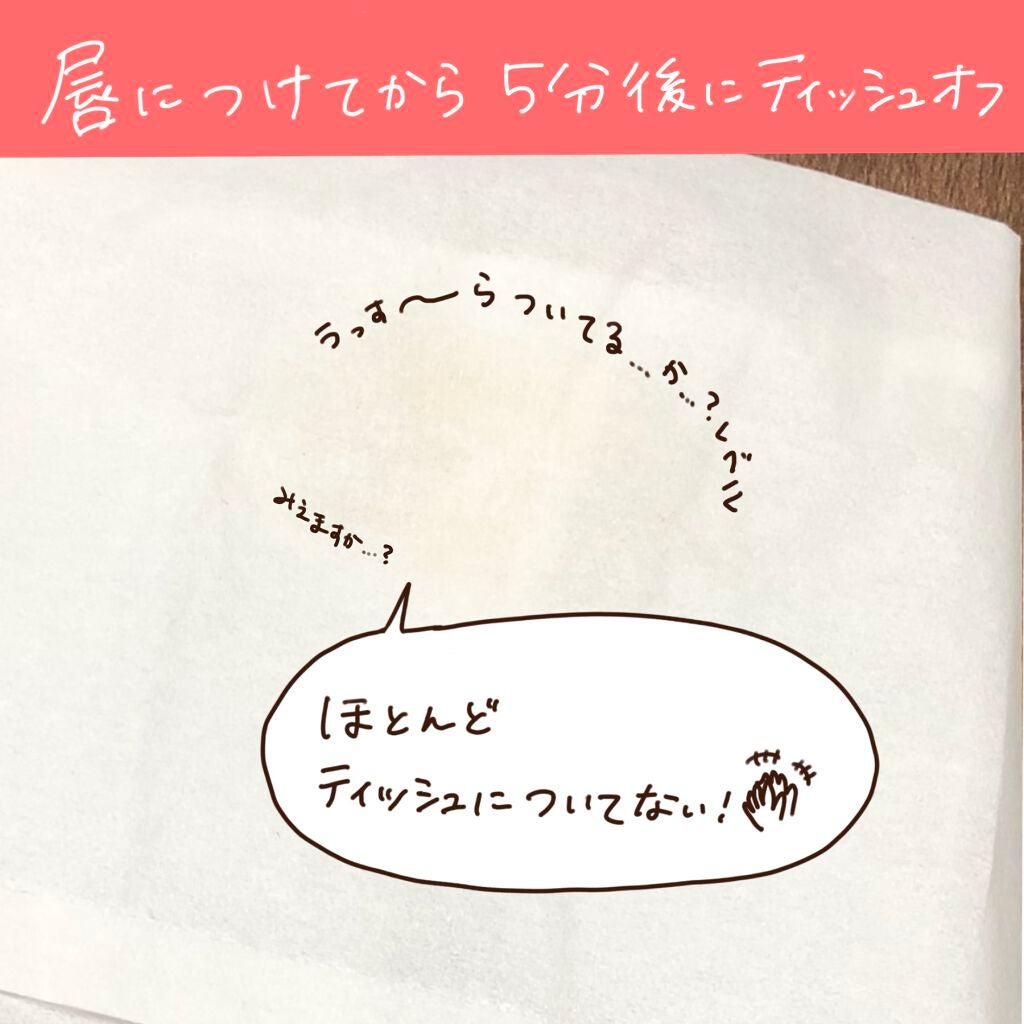 唇につけてから5分後にティッシュオフ
うっす〜らついてる…か…?レベル
みえますか…?
ほとんど
ティッシュについてない!